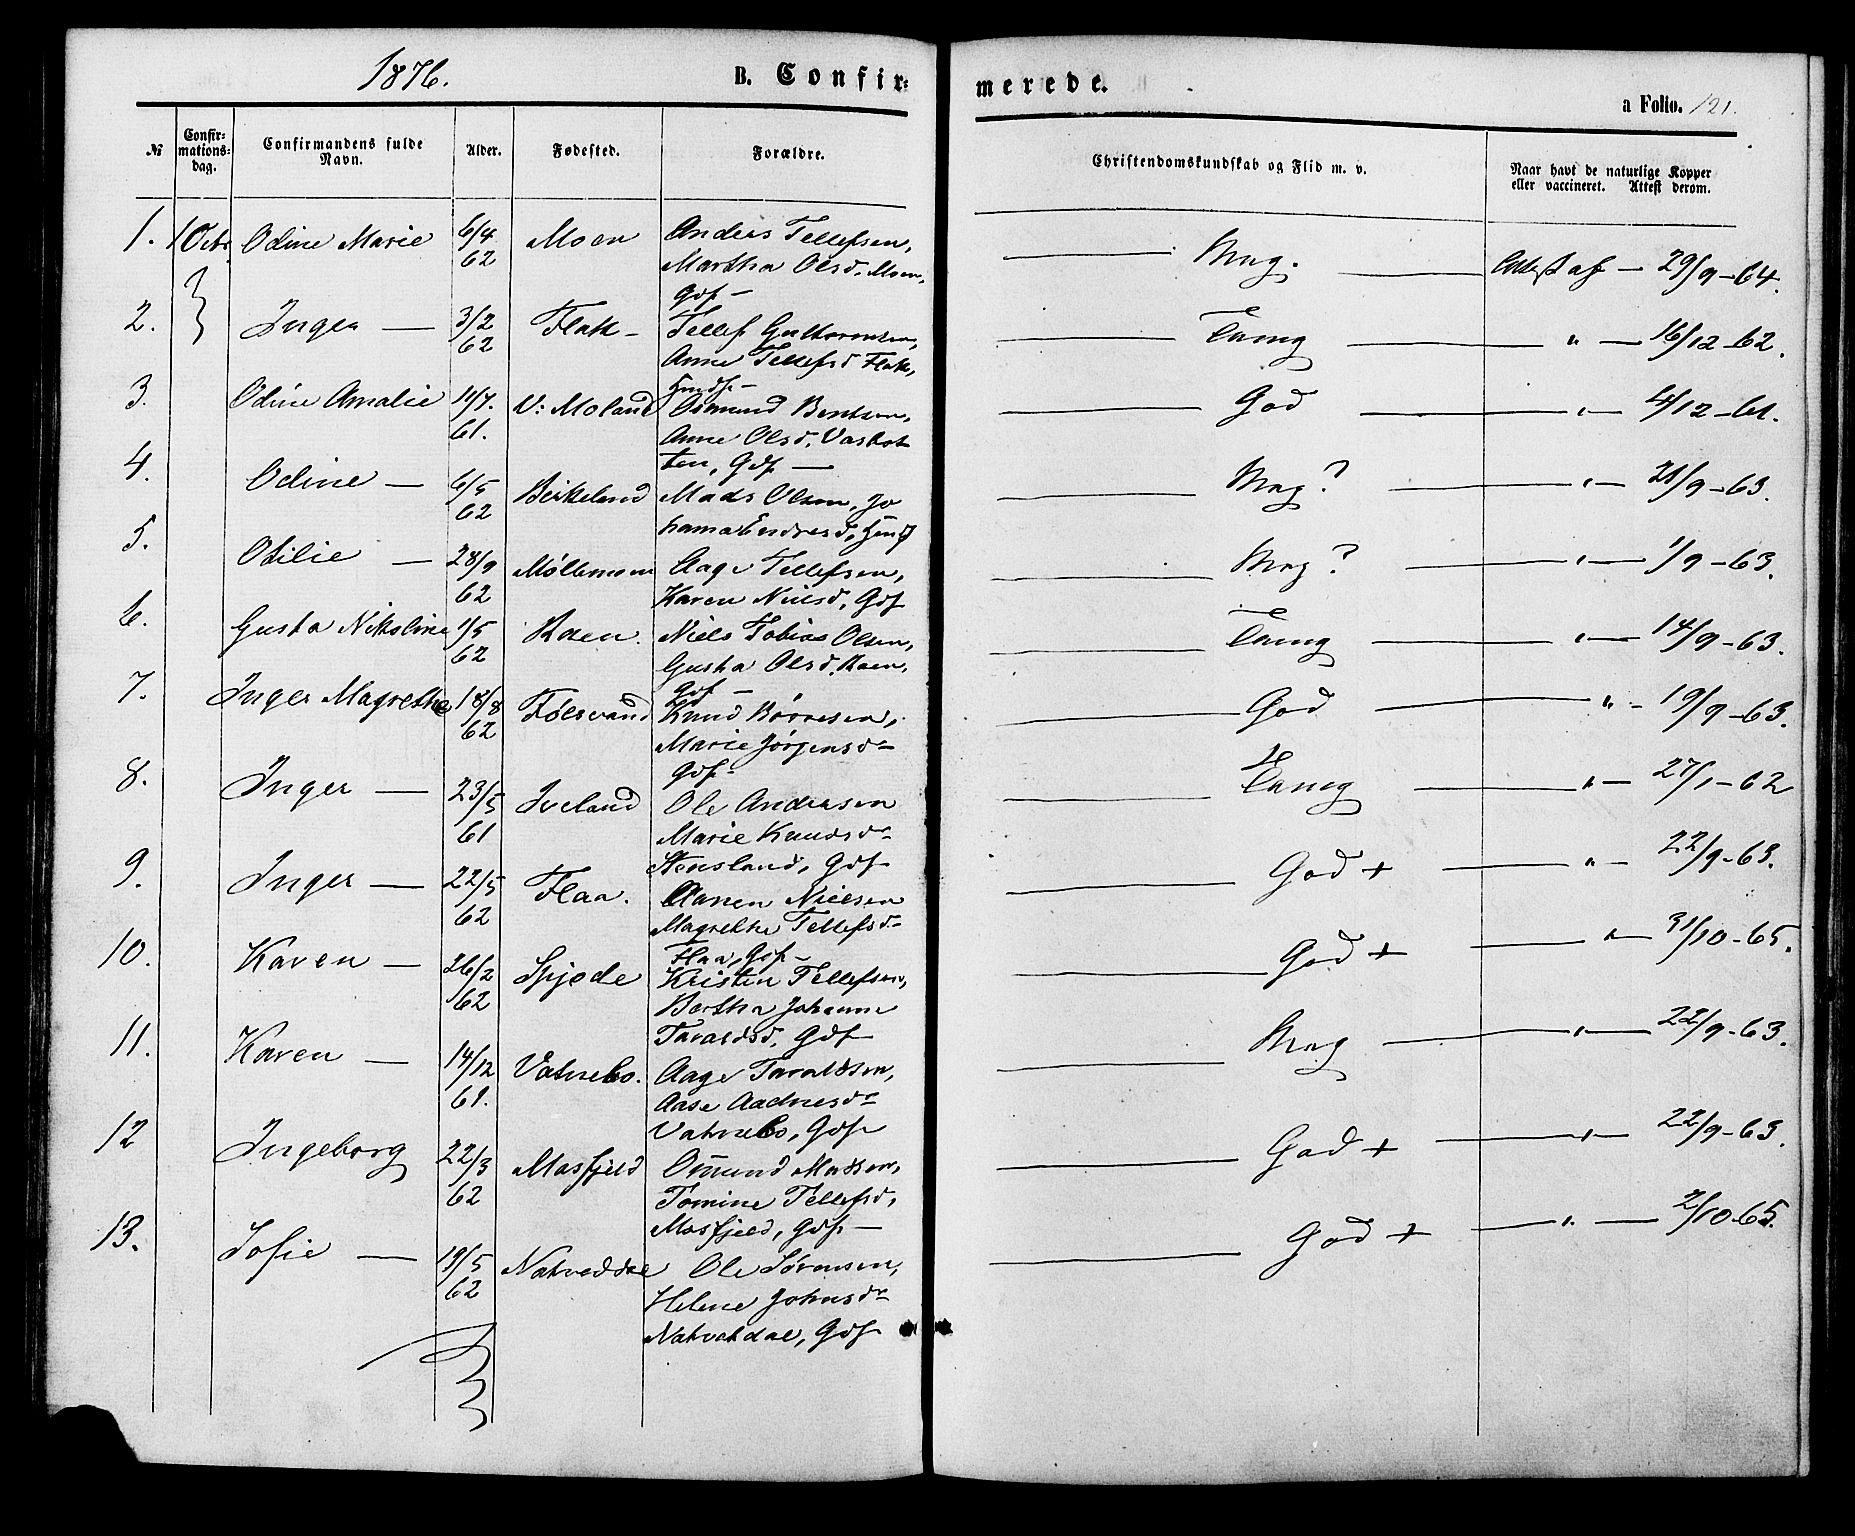 1876. B. Confir=
merede.
a Folio. 121.
№ Confir=mations=dag. Confirmandens fulde Navn. Alder. Fødested. Forældre. Christendomskundskab og Flid m. v. Naar havt de naturlige Kopper eller vaccineret. Attest derom.
1. 1 Octr. Odine Marie 6/4 62 Moen Anders Tellefsen, Mag. Attest af — 29/9-64.
Martha Olsd. Moen,
Gdf —
2. Inger — 3/2 62 Flak — Tellef Guttormsen, Tamg " — 16/12-62.
Anne Tellefsd Flak,
Hmdf —
3. Odine Amalie 11/7. 61. V: Moland Osmund Bentsen, God " — 4/12-61.
Anne Olsd. Vasbot
ten, Gdf —
4. Odine — 6/5 62 Birkeland Mads Olsen, Jo Mag? " — 21/9-63.
hanna Endresd, Hmdf
5. Otilie — 28/9 62 Møllemoen Aage Tellefsen, Mag? " — 1/9-63.
Karen Nielsd, Gdf
6. Gusta Nikoline 1/5 62 Raen. Niels Tobias Olsen, Tamg " — 14/9-63.
Gusta Olsd. Raen,
Gdf —
7. Inger Magrethe 18/8 62 Følesvand Knud Børresen, God " — 19/9-63.
Marie Jørgensdr
Gdf —
8. Inger — 23/5 61 Iveland Ole Andersen Tamg " — 27/1-62
Marie Knudsdr
Stensland, Gdf
9. Inger — 22/5 62 Flaa. Aanen Nielsen God + " — 22/9-63.
Magrethe Tellefsdr
Flaa, Gdf —
10. Karen — 26/2 62 Spjode Kristen Tellefsen, God + " — 31/10-65.
Bertha Johanne
Taraldsd. Gdf
11. Karen — 14/12 61. Vatnebo. Aage Taraldsen, Mag " — 22/9-63.
Aase Aadnesdr
Vatnebo, Gdf
12 Ingeborg 22/3 62 Mosfjeld Omund Madsen, God + " — 22/9-63.
Tomine Tellefsd,
Mosfjeld, Gdf —
13. Sofie — 19/5 62 Natveddal Ole Sørensen, God + " — 2/10-65.
Helene Johnsdr
Natvetdal, Gdf